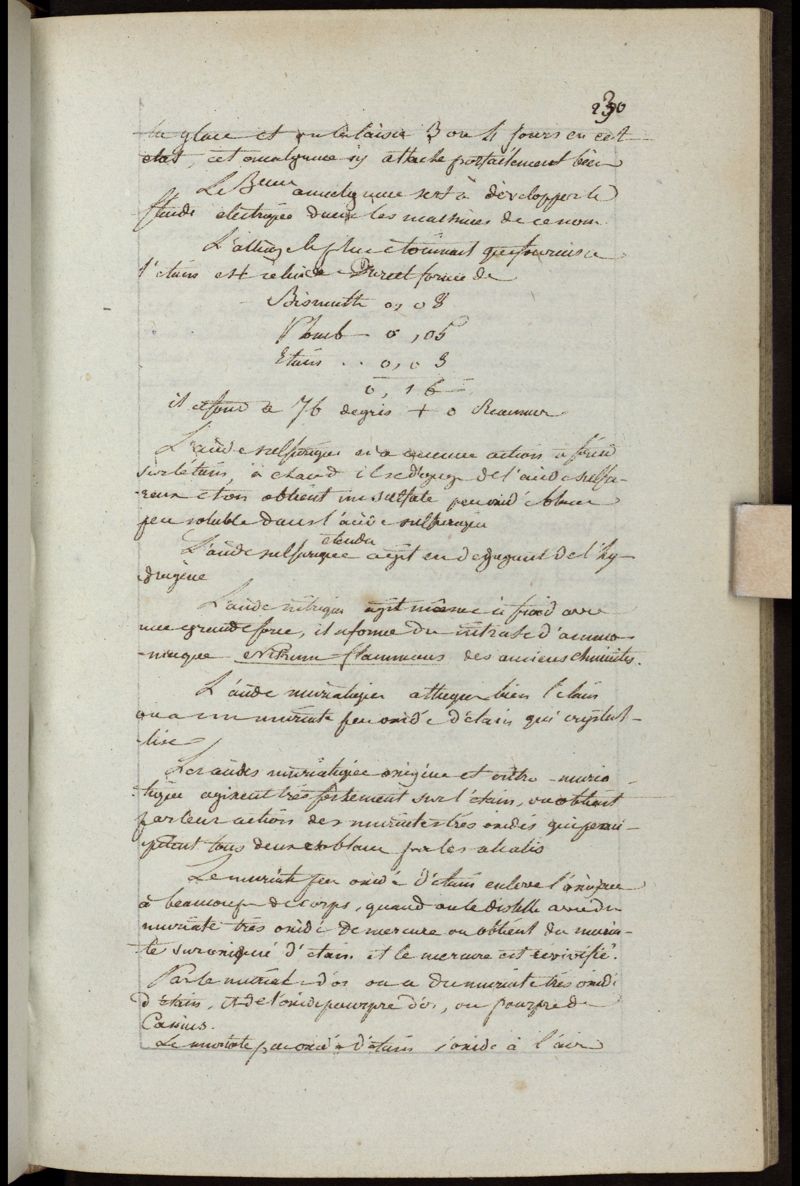 230
la glace et on la laisse 3 ou 4 jours en cet
etat, cet amalgame s'y attache parfaitement bien
Le Beurre amalgame sert à developper le
fluide electrique dans les machines de ce nom.
L'alliage le plus etonnant que fournisse
l'etain est celui de Darcet formé de
Bismuth 0,08
Plomb 0,05
Etain .. 0,03
0,16
il se fond à 76 degrés + 0 Reaumur
L'acide sulfurique n'a aucune action à froid
sur l'etain, à chaud il se degage de l'acide sulfu-
-reux et on obtient un sulfate peu oxidé blanc
peu soluble dans l'acide sulfurique
L'acide sulfurique etendu agit en degageant de l'hy-
drogène
L'acide nitrique agit même à froid avec
une grande force, il se forme du nitrate d'ammo-
-niaque Nitrum flammans des anciens chimistes.
L'acide muriatique attaque bien l'etain
on a un muriate peu oxidé d'etain qui cristal-
lise
Les acides muriatique oxigéné et nitro-muria-
-tique agissent très fortement sur l'etain, on obtient
par leur action des muriates très oxidés qui preci-
-pitent tous deux en blanc par les alcalis
Le muriate peu oxidé d'etain enleve l'oxigene
à beaucoup de corps, quand on le distille avec du
muriate très oxidé de mercure on obtient du muria-
te suroxigené d'etain et le mercure est revivifié.
Par le muriate d'or on a du muriate très oxidé
d'etain, et de l'oxide pourpre d'or, ou pourpre de
Cassius.
Le muriate peu oxidé d'etain s'oxide à l'air